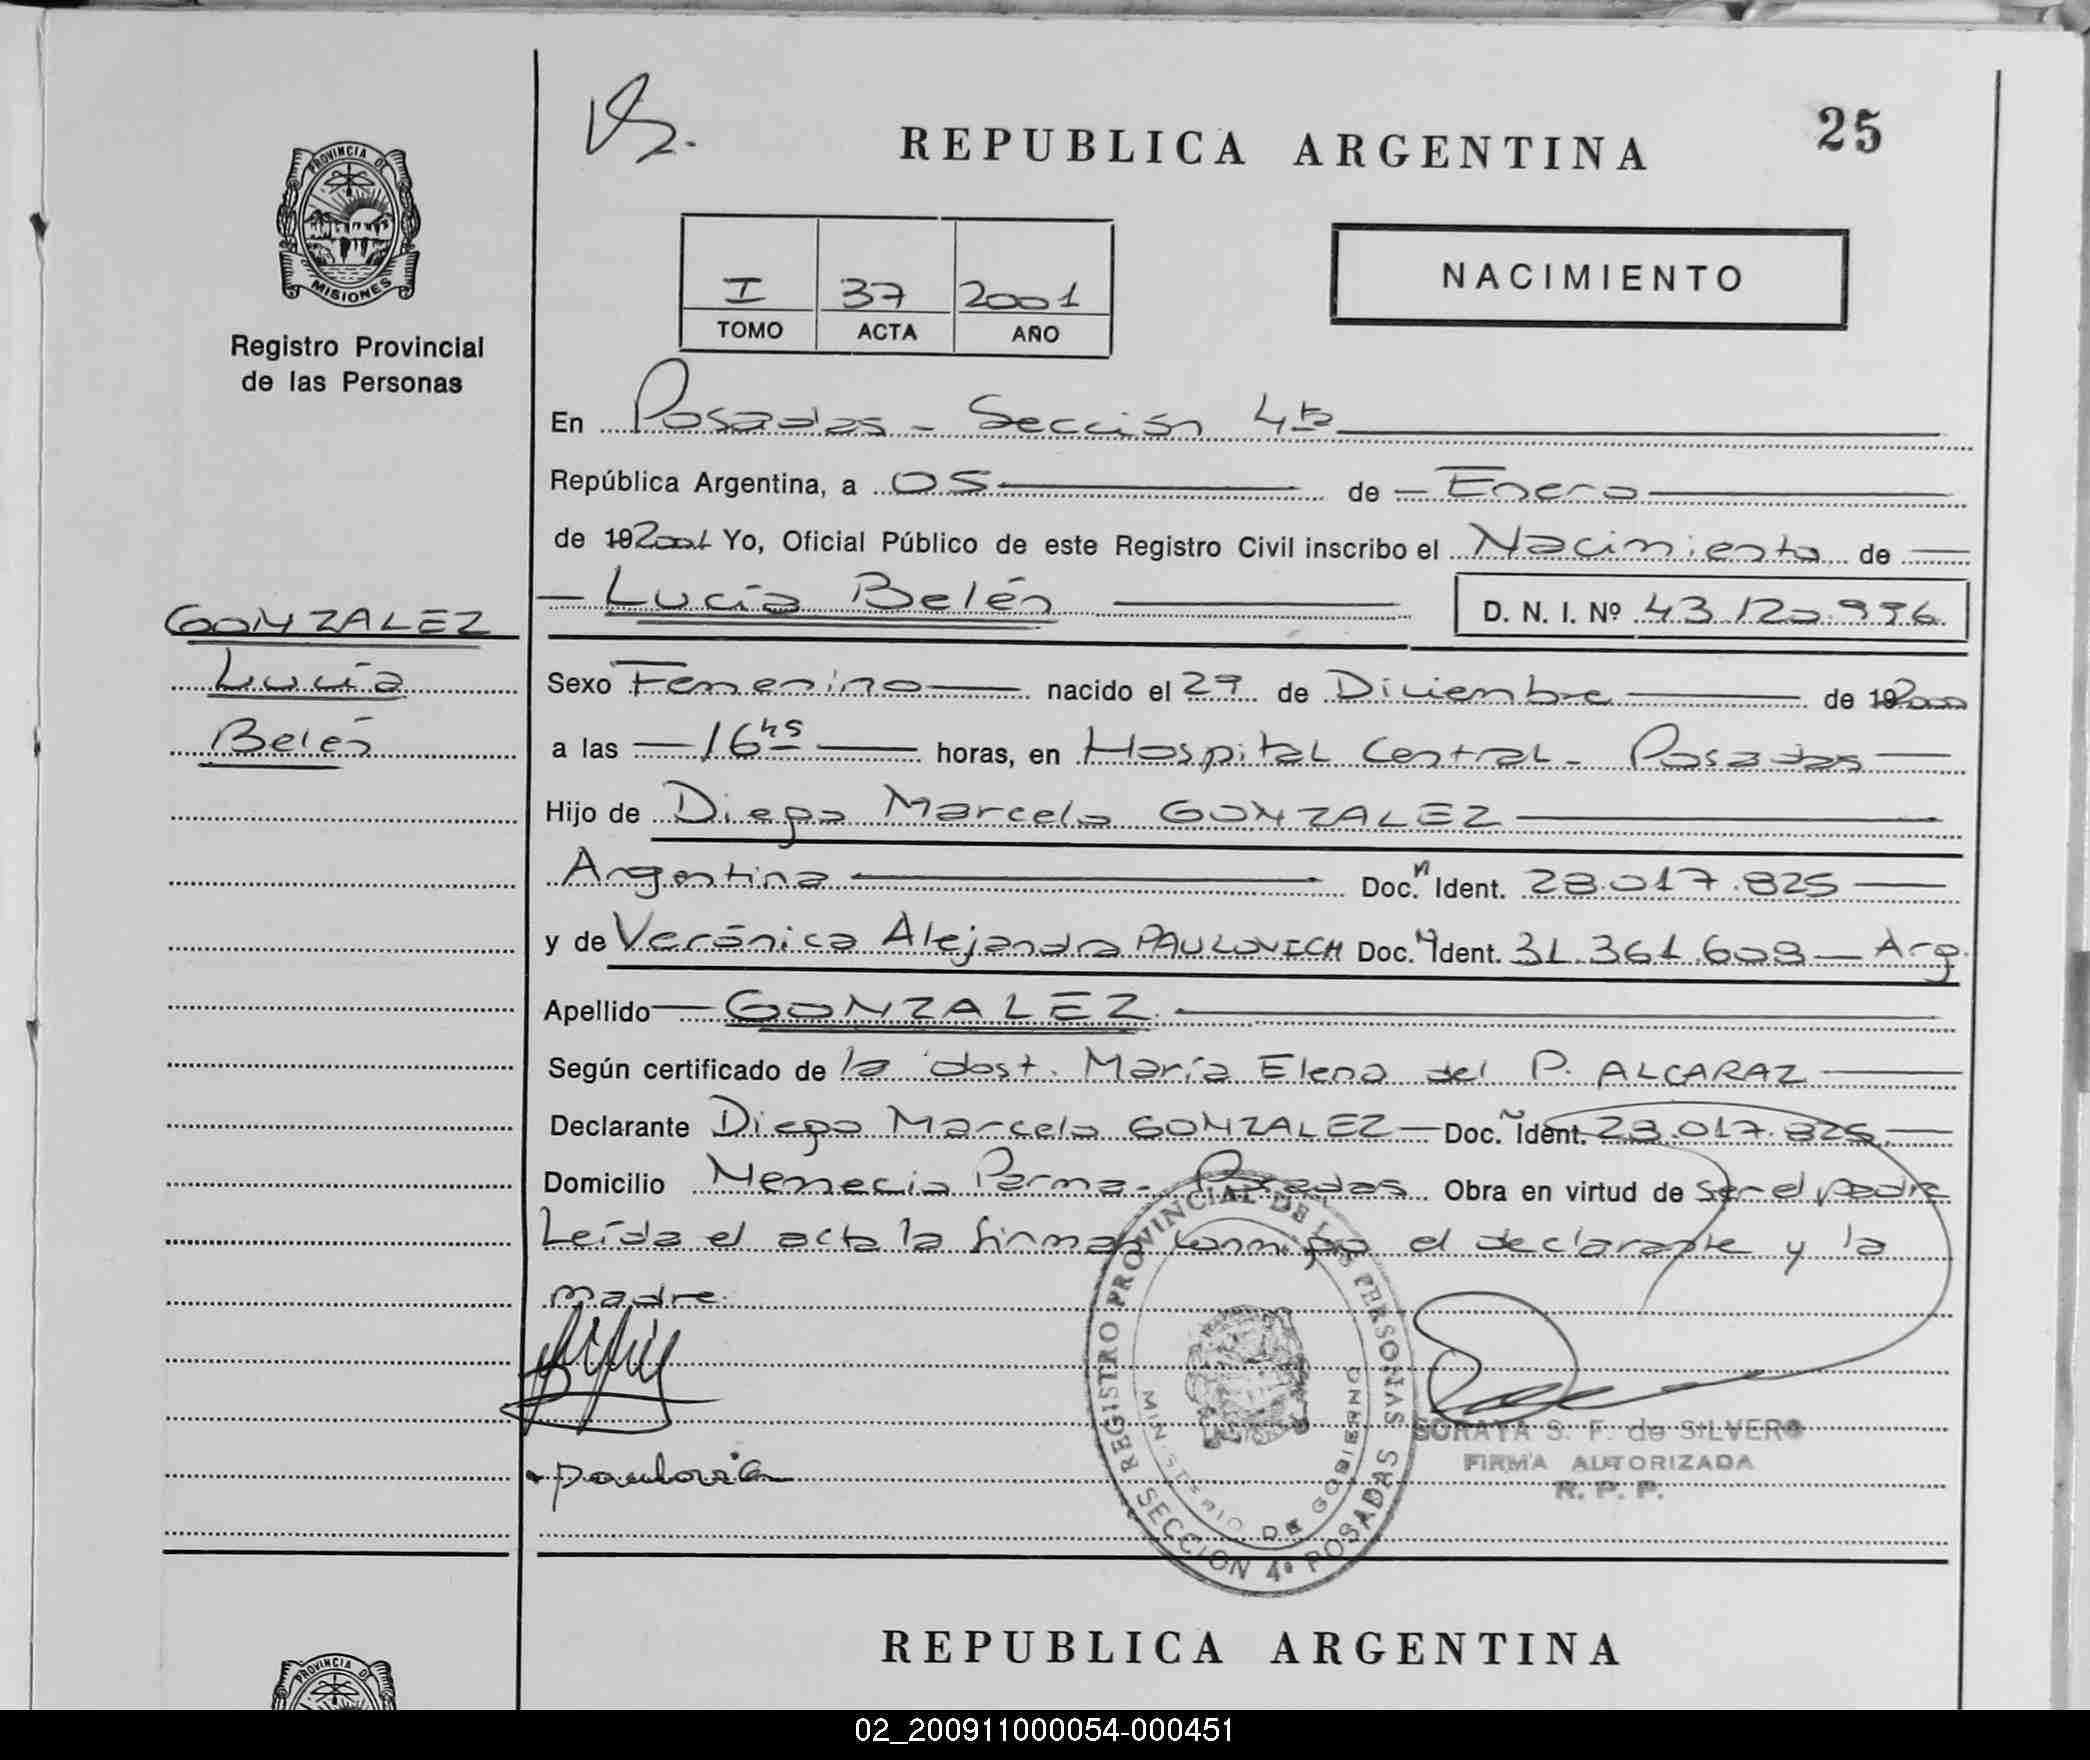 25
REPUBLICA ARGENTINA
PROVINCIA DE
MISIONES
Registro Provincial
de las Personas
I 37 2001
TOMO ACTA AÑO
NACIMIENTO
En Posadas - Sección 4ta
República Argentina, a 05 de Enero
de 192001 Yo, Oficial Público de este Registro Civil inscribo el Nacimiento de
Lucía Belén D. N. I. Nº 43.120.996
GONZALEZ
Lucía
Belén
Sexo Femenino nacido el 29 de Diciembre de 192000
a las 16 45 horas, en Hospital Central - Posadas
Hijo de Diego Marcelo GONZALEZ
Argentina Doc. N Ident. 28.017.825
y de Verónica Alejandra PAULOVICH Doc. N Ident. 31.361.609 - Arg.
Apellido GONZALEZ
Según certificado de la obst. María Elena del P. ALCARAZ
Declarante Diego Marcelo GONZALEZ Doc. N Ident. 28.017.825
Domicilio Nemecio Parma - Posadas Obra en virtud de ser el padre
Leída el acta la firman conmigo el declarante y la
madre.
REGISTRO PROVINCIAL DE LAS PERSONAS
MINISTERIO DE GOBIERNO
SECCION 4ª POSADAS
SORAYA S. F. de SILVERO
FIRMA AUTORIZADA
R. P. P.
REPUBLICA ARGENTINA
PROVINCIA DE
02_200911000054-000451